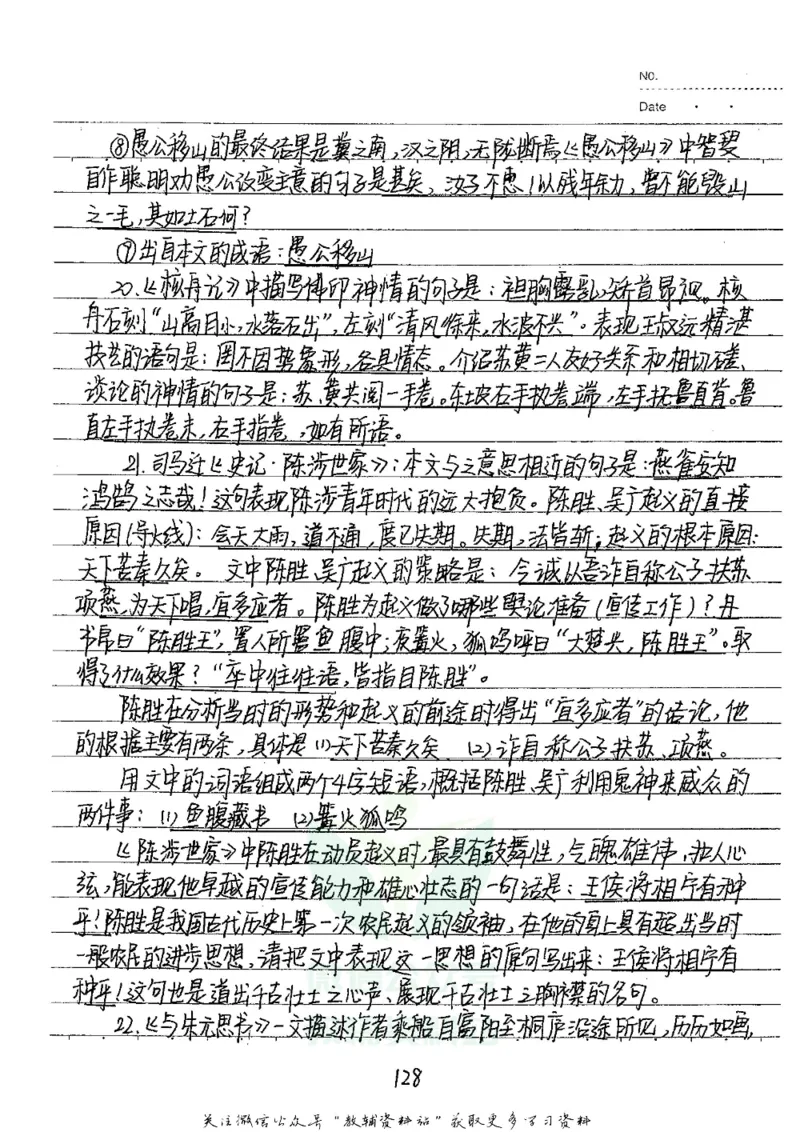 NO.
Date
⑧愚公移山的最终结果是冀之南,汉之阴,无陇断焉《愚公移山》中智叟
自作聪明劝愚公改变主意的句子是甚矣、汝之不惠!以残年余力,曾不能毁山
之一毛,其如土石何?
⑨出自本文的成语:愚公移山
20.《核舟记》中描写佛印神情的句子是:袒胸露乳,矫首昂视。核
舟右刻“山高月小,水落石出”,左刻“清风徐来,水波不兴”。表现王叔远精湛
技艺的语句是:罔不因势象形,各具情态。介绍苏黄二人友好关系和相切磋、
谈论的神情的句子是:苏、黄共阅一手卷。东坡右手执卷端,左手抚鲁直背。鲁
直左手执卷末,右手指卷,如有所语。
21.司马迁《史记·陈涉世家》:本文与之意思相近的句子是:燕雀安知
鸿鹄之志哉!这句表现陈涉青年时代的远大抱负。陈胜、吴广起义的直接
原因(导火线):会天大雨,道不通,度已失期。失期,法皆斩;起义的根本原因:
天下苦秦久矣。文中陈胜、吴广起义的策略是:今诚以吾诈自称公子扶苏
项燕,为天下唱,宜多应者。陈胜为起义做了哪些舆论准备(宣传工作)?丹
书帛曰“陈胜王”,置人所罾鱼腹中;夜篝火,狐鸣呼曰“大楚兴,陈胜王”。取
得了什么效果?“卒中往往语,皆指目陈胜”。
陈胜在分析当时的形势和起义的前途时得出“宜多应者”的结论,他
的根据主要有两条,具体是(1)天下苦秦久矣 (2)诈自称公子扶苏、项燕。
用文中的词语组成两个4字短语,概括陈胜、吴广利用鬼神来威众的
两件事:(1)鱼腹藏书 (2)篝火狐鸣
《陈涉世家》中陈胜在动员起义时,最具有鼓舞性,气魄雄伟,扣人心
弦,能表现他卓越的宣传能力和雄心壮志的一句话是:王侯将相宁有种
乎!陈胜是我国古代历史上第一次农民起义的领袖,在他的身上具有超出当时
一般农民的进步思想,请把文中表现这一思想的原句写出来:王侯将相宁有
种乎!这句也是道出千古壮士之心声、展现千古壮士之胸襟的名句。
22.《与朱元思书》一文描述作者乘船自富阳至桐庐沿途所见,历历如画,
128
关注微信公众号“教辅资料站”获取更多学习资料